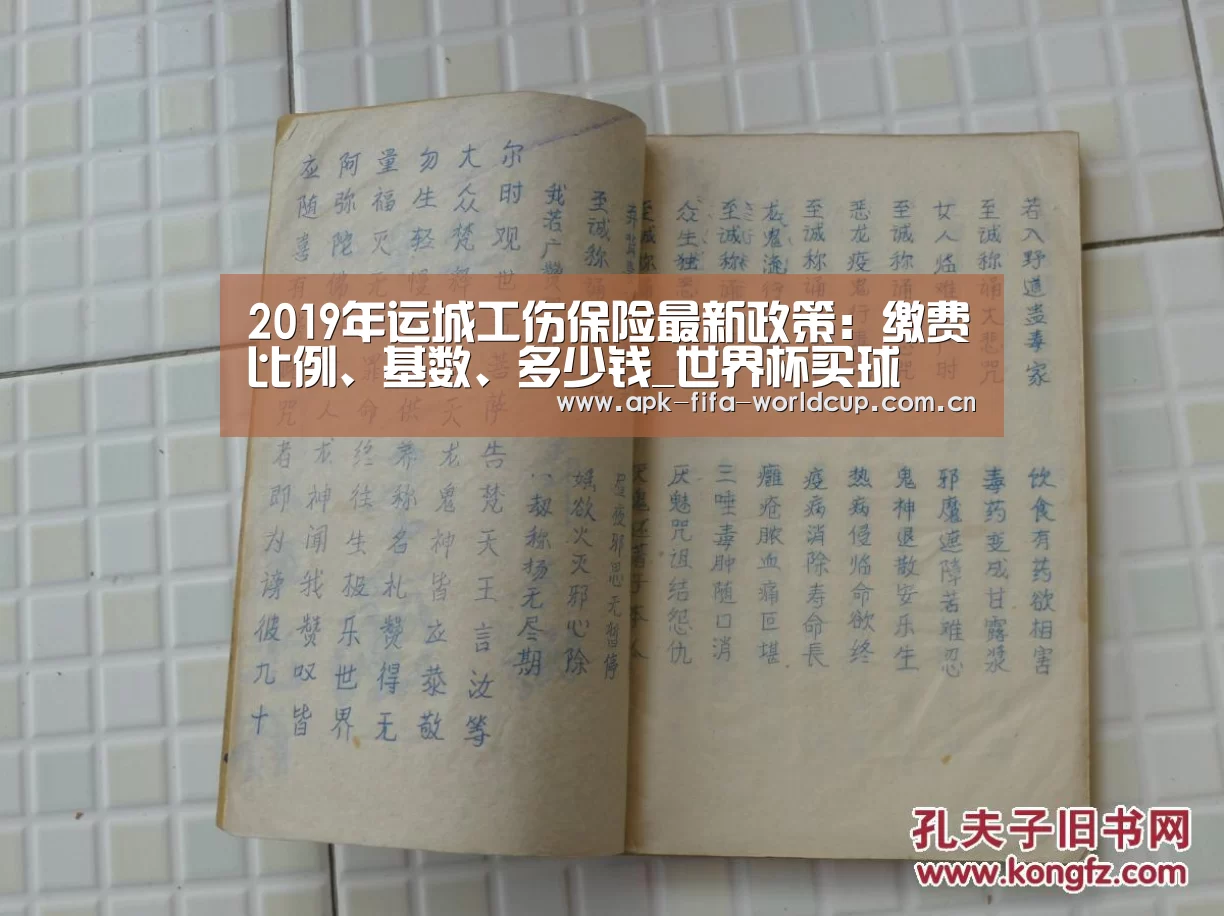 2019年运城工伤保险最新政策：缴费
比例、基数、多少钱_世界杯买球
www.apk-fifa-worldcup.com.cn
若入野道蛊毒家
饮食有药欲相害
至诚称诵大悲咒
毒药变成甘露浆
女人临难产时
邪魔遮障苦难忍
至诚称诵
鬼神退散安乐生
恶龙疫鬼行毒
热病侵临命欲终
至诚称诵
疫病消除寿命長
龙鬼流行
癰疮脓血痛叵堪
至诚称诵
三唾毒肿随口消
众生独恶
厌魅咒诅结怨仇
至诚称
邪思无暂停
至诚称诵
婬欲火灭邪心除
我若广赞
劫称扬无尽期
尔时观世菩萨告梵天王言汝等
大众梵释天龙鬼神皆应恭敬
勿生轻慢供养称名礼赞得无
量福灭无罪命终往生极乐世界
阿弥陀佛人龙神闻我赞叹皆
应随喜有咒者即为谤彼九十
孔夫子旧书网
www.kongfz.com